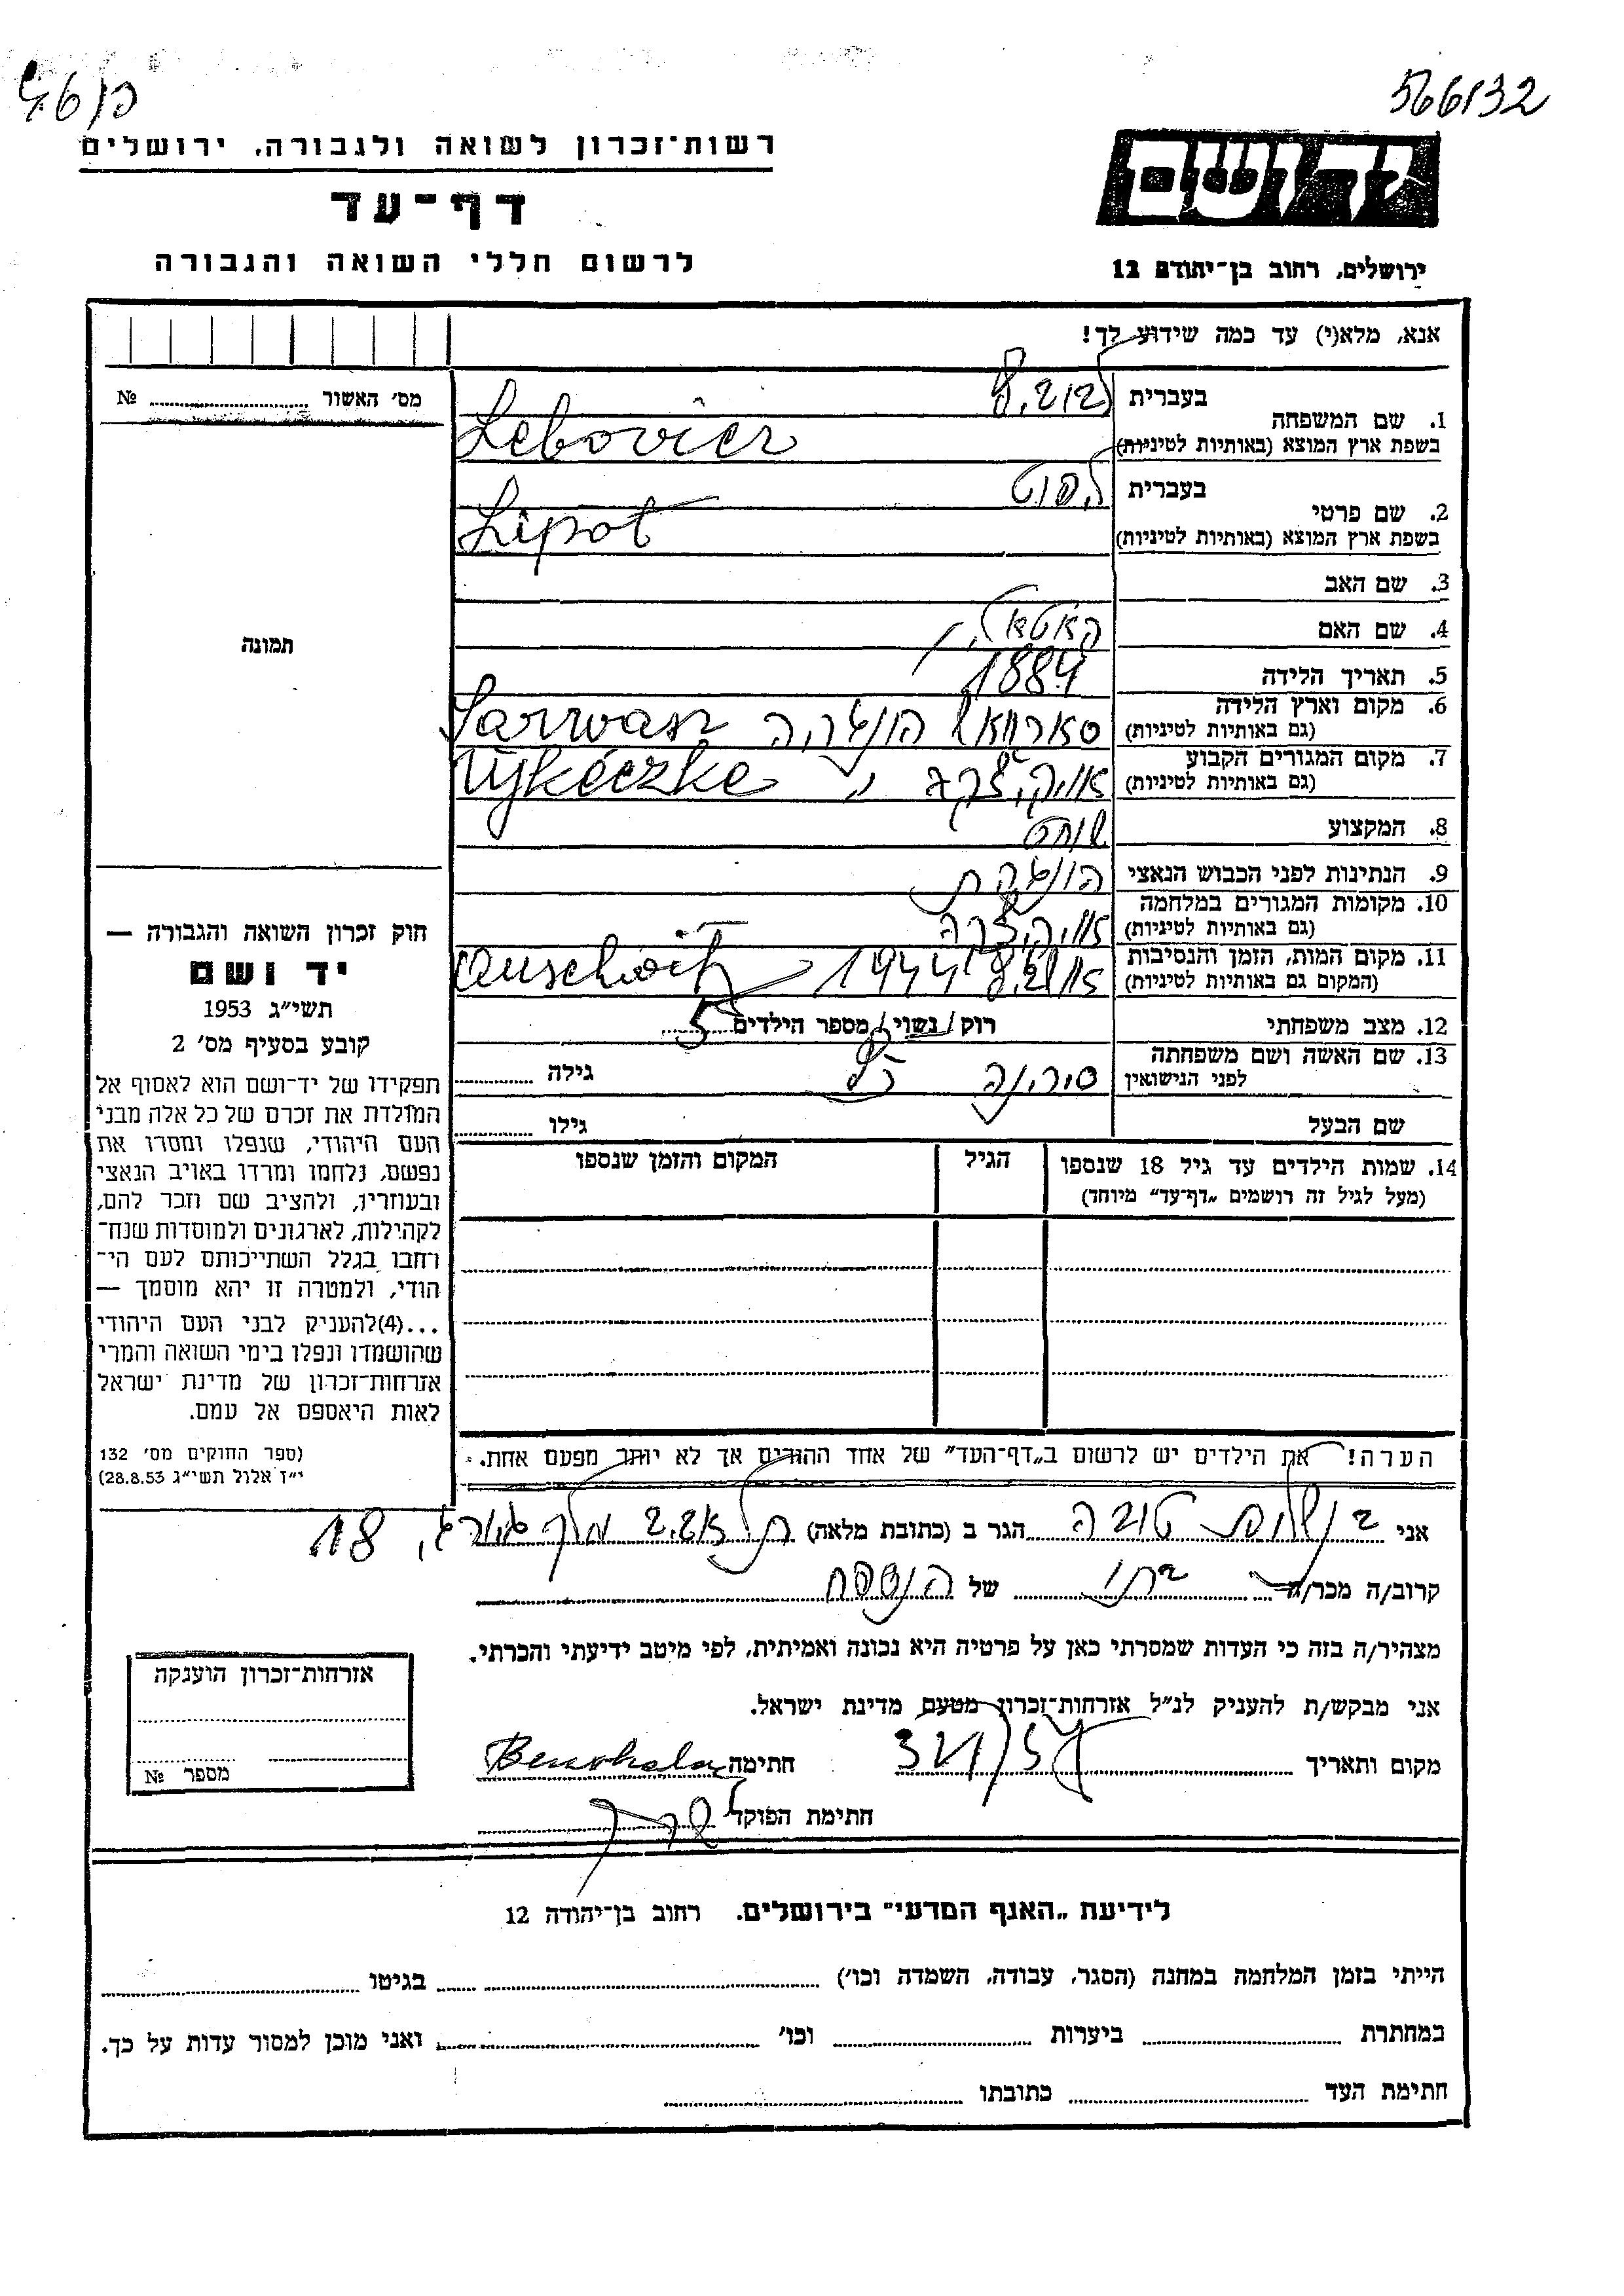 566132
רשות-זכרון לשואה ולגבורה, ירושלים
ידושם
דף-עד
ירושלים, רחוב בן-יהודה 12
לרשום חללי השואה והגבורה
אנא, מלא(י) עד כמה שידוע לך!
מס׳ האשור № 
1. שם המשפחה
בעברית
בשפת ארץ המוצא (באותיות לטיניות) Lebovicz
2. שם פרטי
בעברית ליפוט
בשפת ארץ המוצא (באותיות לטיניות) Lipot
3. שם האב
4. שם האם
5. תאריך הלידה 1884
6. מקום וארץ הלידה
(גם באותיות לטיניות) הונגריה Sarwasz
7. מקום המגורים הקבוע
(גם באותיות לטיניות) Ujkéczke
8. המקצוע שוחט
9. הנתינות לפני הכבוש הנאצי הונגרית
10. מקומות המגורים במלחמה
(גם באותיות לטיניות)
11. מקום המות, הזמן והנסיבות
(המקום גם באותיות לטיניות) 1944 Auschwitz
12. מצב משפחתי רוק/נשוי/ מספר הילדים 5
13. שם האשה ושם משפחתה
לפני הנישואין גילה
שם הבעל גילו
14. שמות הילדים עד גיל 18 שנספו
(מעל לגיל זה רושמים „דף-עד״ מיוחד)
הגיל
המקום והזמן שנספו
תמונה
חוק זכרון השואה והגבורה —
יד ושם
תשי״ג 1953
קובע בסעיף מס׳ 2
תפקידו של יד-ושם הוא לאסוף אל
המולדת את זכרם של כל אלה מבני
העם היהודי, שנפלו ומסרו את
נפשם, נלחמו ומרדו באויב הנאצי
ובעוזריו, ולהציב שם וזכר להם,
לקהילות, לארגונים ולמוסדות שנח-
רחבו בגלל השתייכותם לעם הי-
הודי, ולמטרה זו יהא מוסמך —
...(4)להעניק לבני העם היהודי
שהושמדו ונפלו בימי השואה והמרי
אזרחות-זכרון של מדינת ישראל
לאות היאספם אל עמם.
(ספר החוקים מס׳ 132
י״ז אלול תשי״ג 28.8.53)
הערה! את הילדים יש לרשום ב„דף-העד״ של אחד ההורים אך לא יותר מפעם אחת.
אני טובה הגר ב (כתובת מלאה) 18
קרוב/ה מכר/ה בתו של הנספה
מצהיר/ה בזה כי העדות שמסרתי כאן על פרטיה היא נכונה ואמיתית, לפי מיטב ידיעתי והכרתי.
אני מבקש/ת להעניק לנ״ל אזרחות-זכרון מטעם מדינת ישראל.
מקום ותאריך חתימה
חתימת הפוקד
אזרחות-זכרון הוענקה
מספר №
לידיעת „האגף המדעי״ בירושלים. רחוב בן-יהודה 12
הייתי בזמן המלחמה במחנה (הסגר, עבודה, השמדה וכו׳) בגיטו
במחתרת ביערות וכו׳ ואני מוכן למסור עדות על כך.
חתימת העד כתובתו